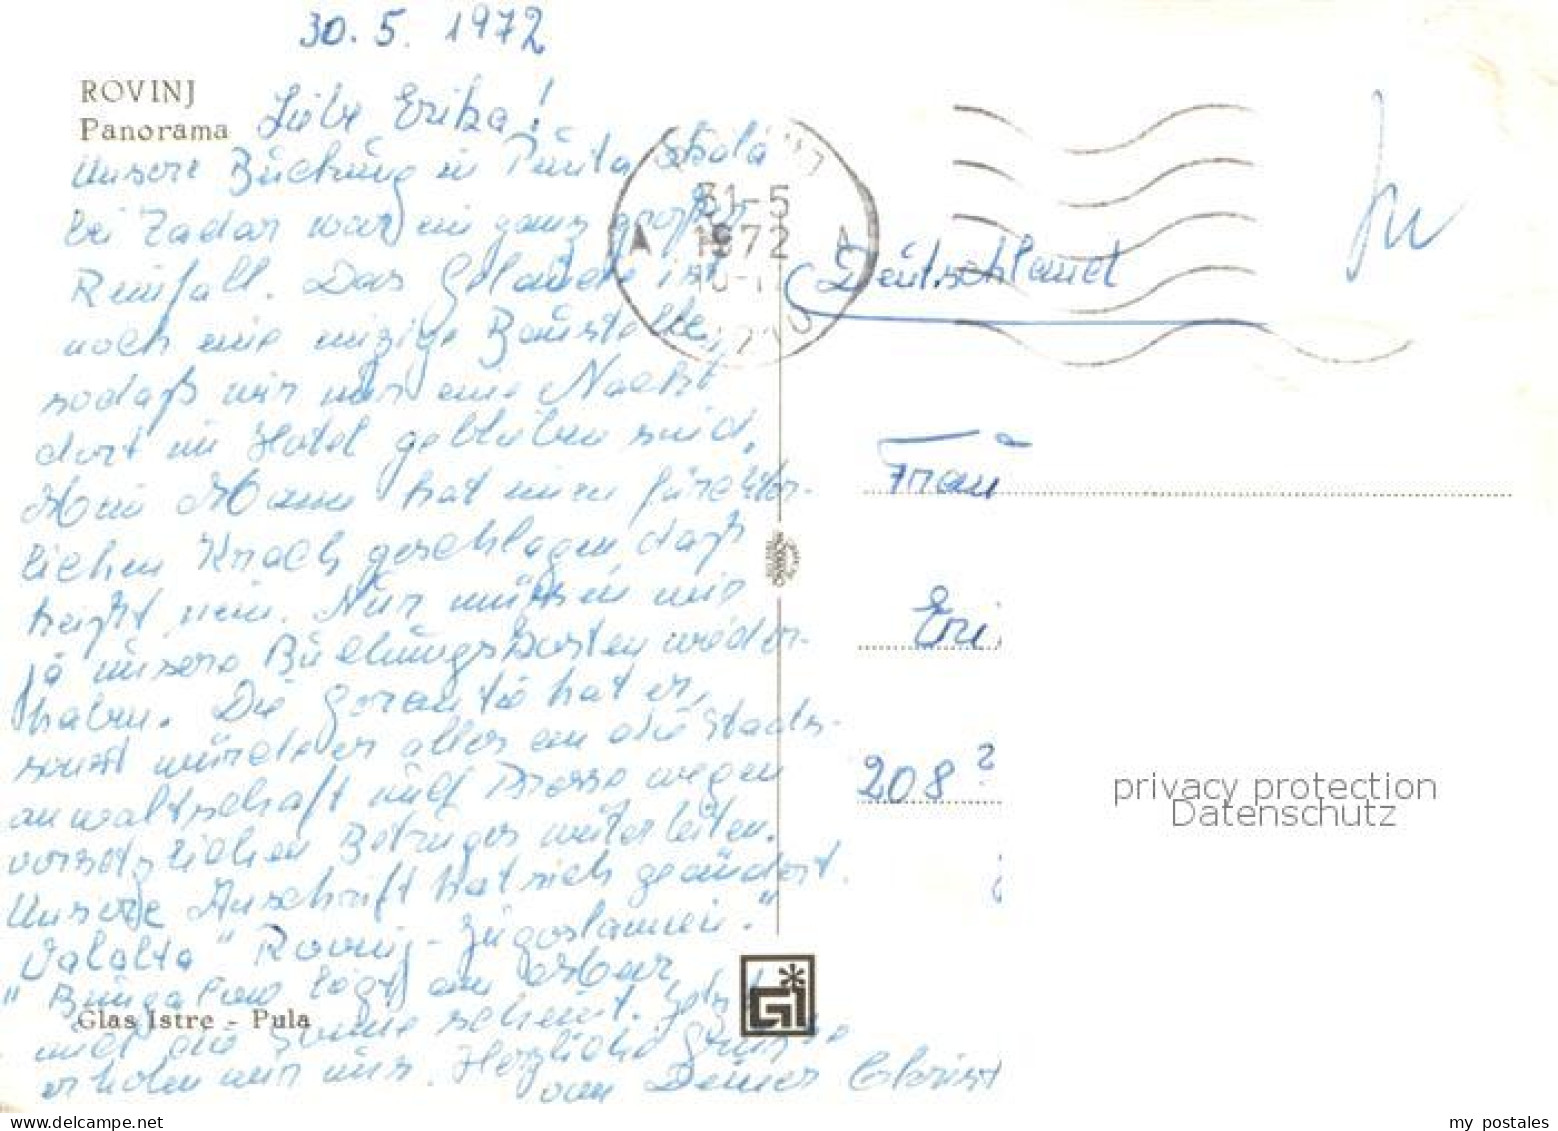 30. 5. 1972
ROVINJ
Panorama
Liebe Erika!
Unsere Buchung in Punta Skala
bei Zadar war ein ganz großer
Reinfall. Das Gelände ist
noch eine einzige Baustelle,
sodaß wir nur eine Nacht
dort im Hotel geblieben sind.
Mein Mann hat einen fürchter-
lichen Krach geschlagen daß
heißt nein. Nur müssen wir
ja unsere Buchungskosten wieder-
haben. Die Garantie hat er,
sonst würde er alles an die Staats-
anwaltschaft und Presse wegen
vorsätzlichen Betruges weiterleiten.
Unsere Anschrift hat sich geändert.
"Valalta" Rovinj - Jugoslawien."
"Bungalow liegt am Meer
und die Sonne scheint. Jetzt
erholen wir uns. Herzliche Grüße
von Deiner Christ
Glas Istre - Pula
31-5
1972
A
A
Deutschland
Frau
Eri
208?
privacy protection
Datenschutz
GI
my postales